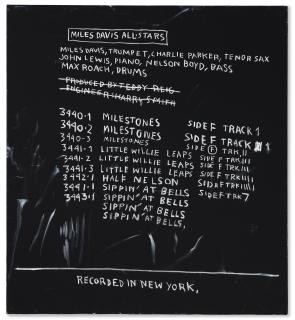 MILES DAVIS ALL STARS
MILES DAVIS, TRUMPET, CHARLIE PARKER, TENOR SAX
JOHN LEWIS, PIANO, NELSON BOYD, BASS
MAX ROACH, DRUMS
PRODUCED BY TEDDY REIG
ENGINEER: HARRY SMITH
3440·1 MILESTONES SIDE F TRACK 1
3440·2 MILESTONES SIDE F TRACK 1
3440-3 MILESTONES SIDE F TRK II
3441·1 LITTLE WILLIE LEAPS SIDE F TRK III
3441·2 LITTLE WILLIE LEAPS SIDE F TRK IIII
3441·3 LITTLE WILLIE LEAPS SIDE F TRK IIIII
3442·1 HALF NELSON SIDE F TRK
3443·1 SIPPIN' AT BELLS
SIPPIN' AT BELLS
SIPPIN' AT BELLS
SIPPIN' AT BELLS,
RECORDED IN NEW YORK,